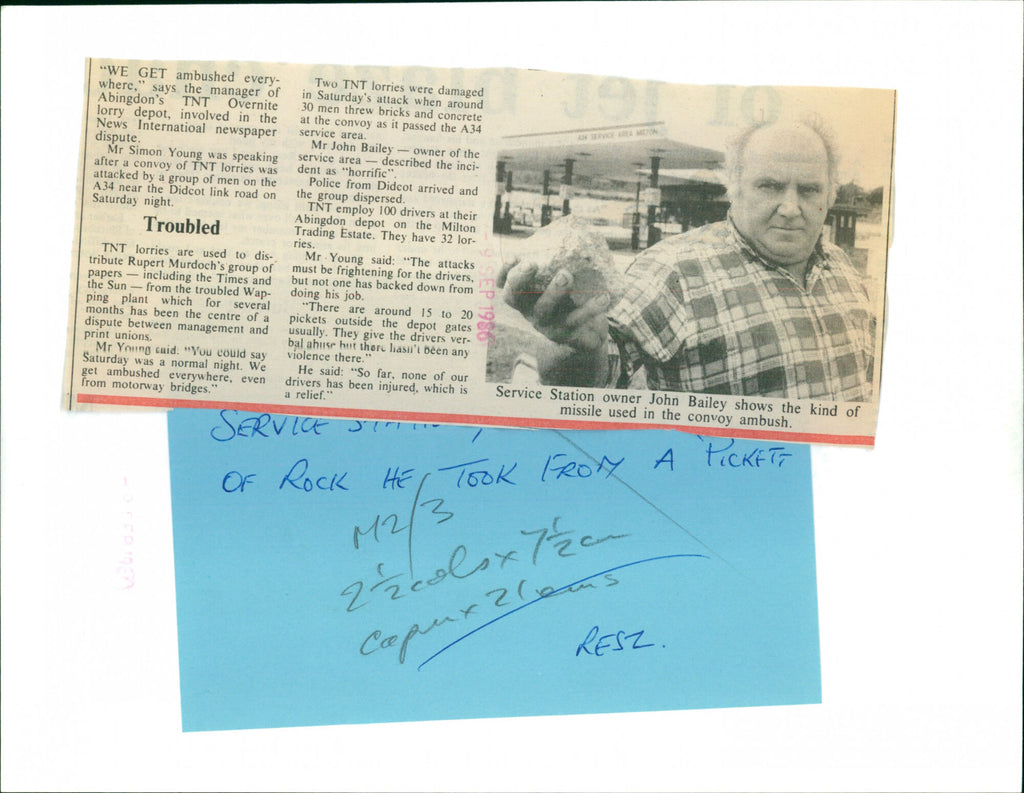 “WE GET ambushed every-
where,” says the manager of
Abingdon's TNT Overnite
lorry depot, involved in the
News Internatioal newspaper
dispute.
Mr Simon Young was speaking
after a convoy of TNT lorries was
attacked by a group of men on the
A34 near the Didcot link road on
Saturday night.
Troubled
TNT lorries are used to dis-
tribute Rupert Murdoch's group of
papers — including the Times and
the Sun — from the troubled Wap-
ping plant which for several
months has been the centre of a
dispute between management and
print unions.
Mr Young said: “You could say
Saturday was a normal night. We
get ambushed everywhere, even
from motorway bridges.”
Two TNT lorries were damaged
in Saturday's attack when around
30 men threw bricks and concrete
at the convoy as it passed the A34
service area.
Mr John Bailey — owner of the
service area — described the inci-
dent as “horrific”.
Police from Didcot arrived and
the group dispersed.
TNT employ 100 drivers at their
Abingdon depot on the Milton
Trading Estate. They have 32 lor-
ries.
Mr Young said: “The attacks
must be frightening for the drivers,
but not one has backed down from
doing his job.
“There are around 15 to 20
pickets outside the depot gates
usually. They give the drivers ver-
bal abuse but there hasn't been any
violence there.”
He said: “So far, none of our
drivers has been injured, which is
a relief.”
A34 SERVICE AREA MILTON
-9 SEP 1986
Service Station owner John Bailey shows the kind of
missile used in the convoy ambush.
SERVICE
OF ROCK HE TOOK FROM A PICKETT
M2/3
2½cols x 7½cm
Capn x 21ems
RESZ.